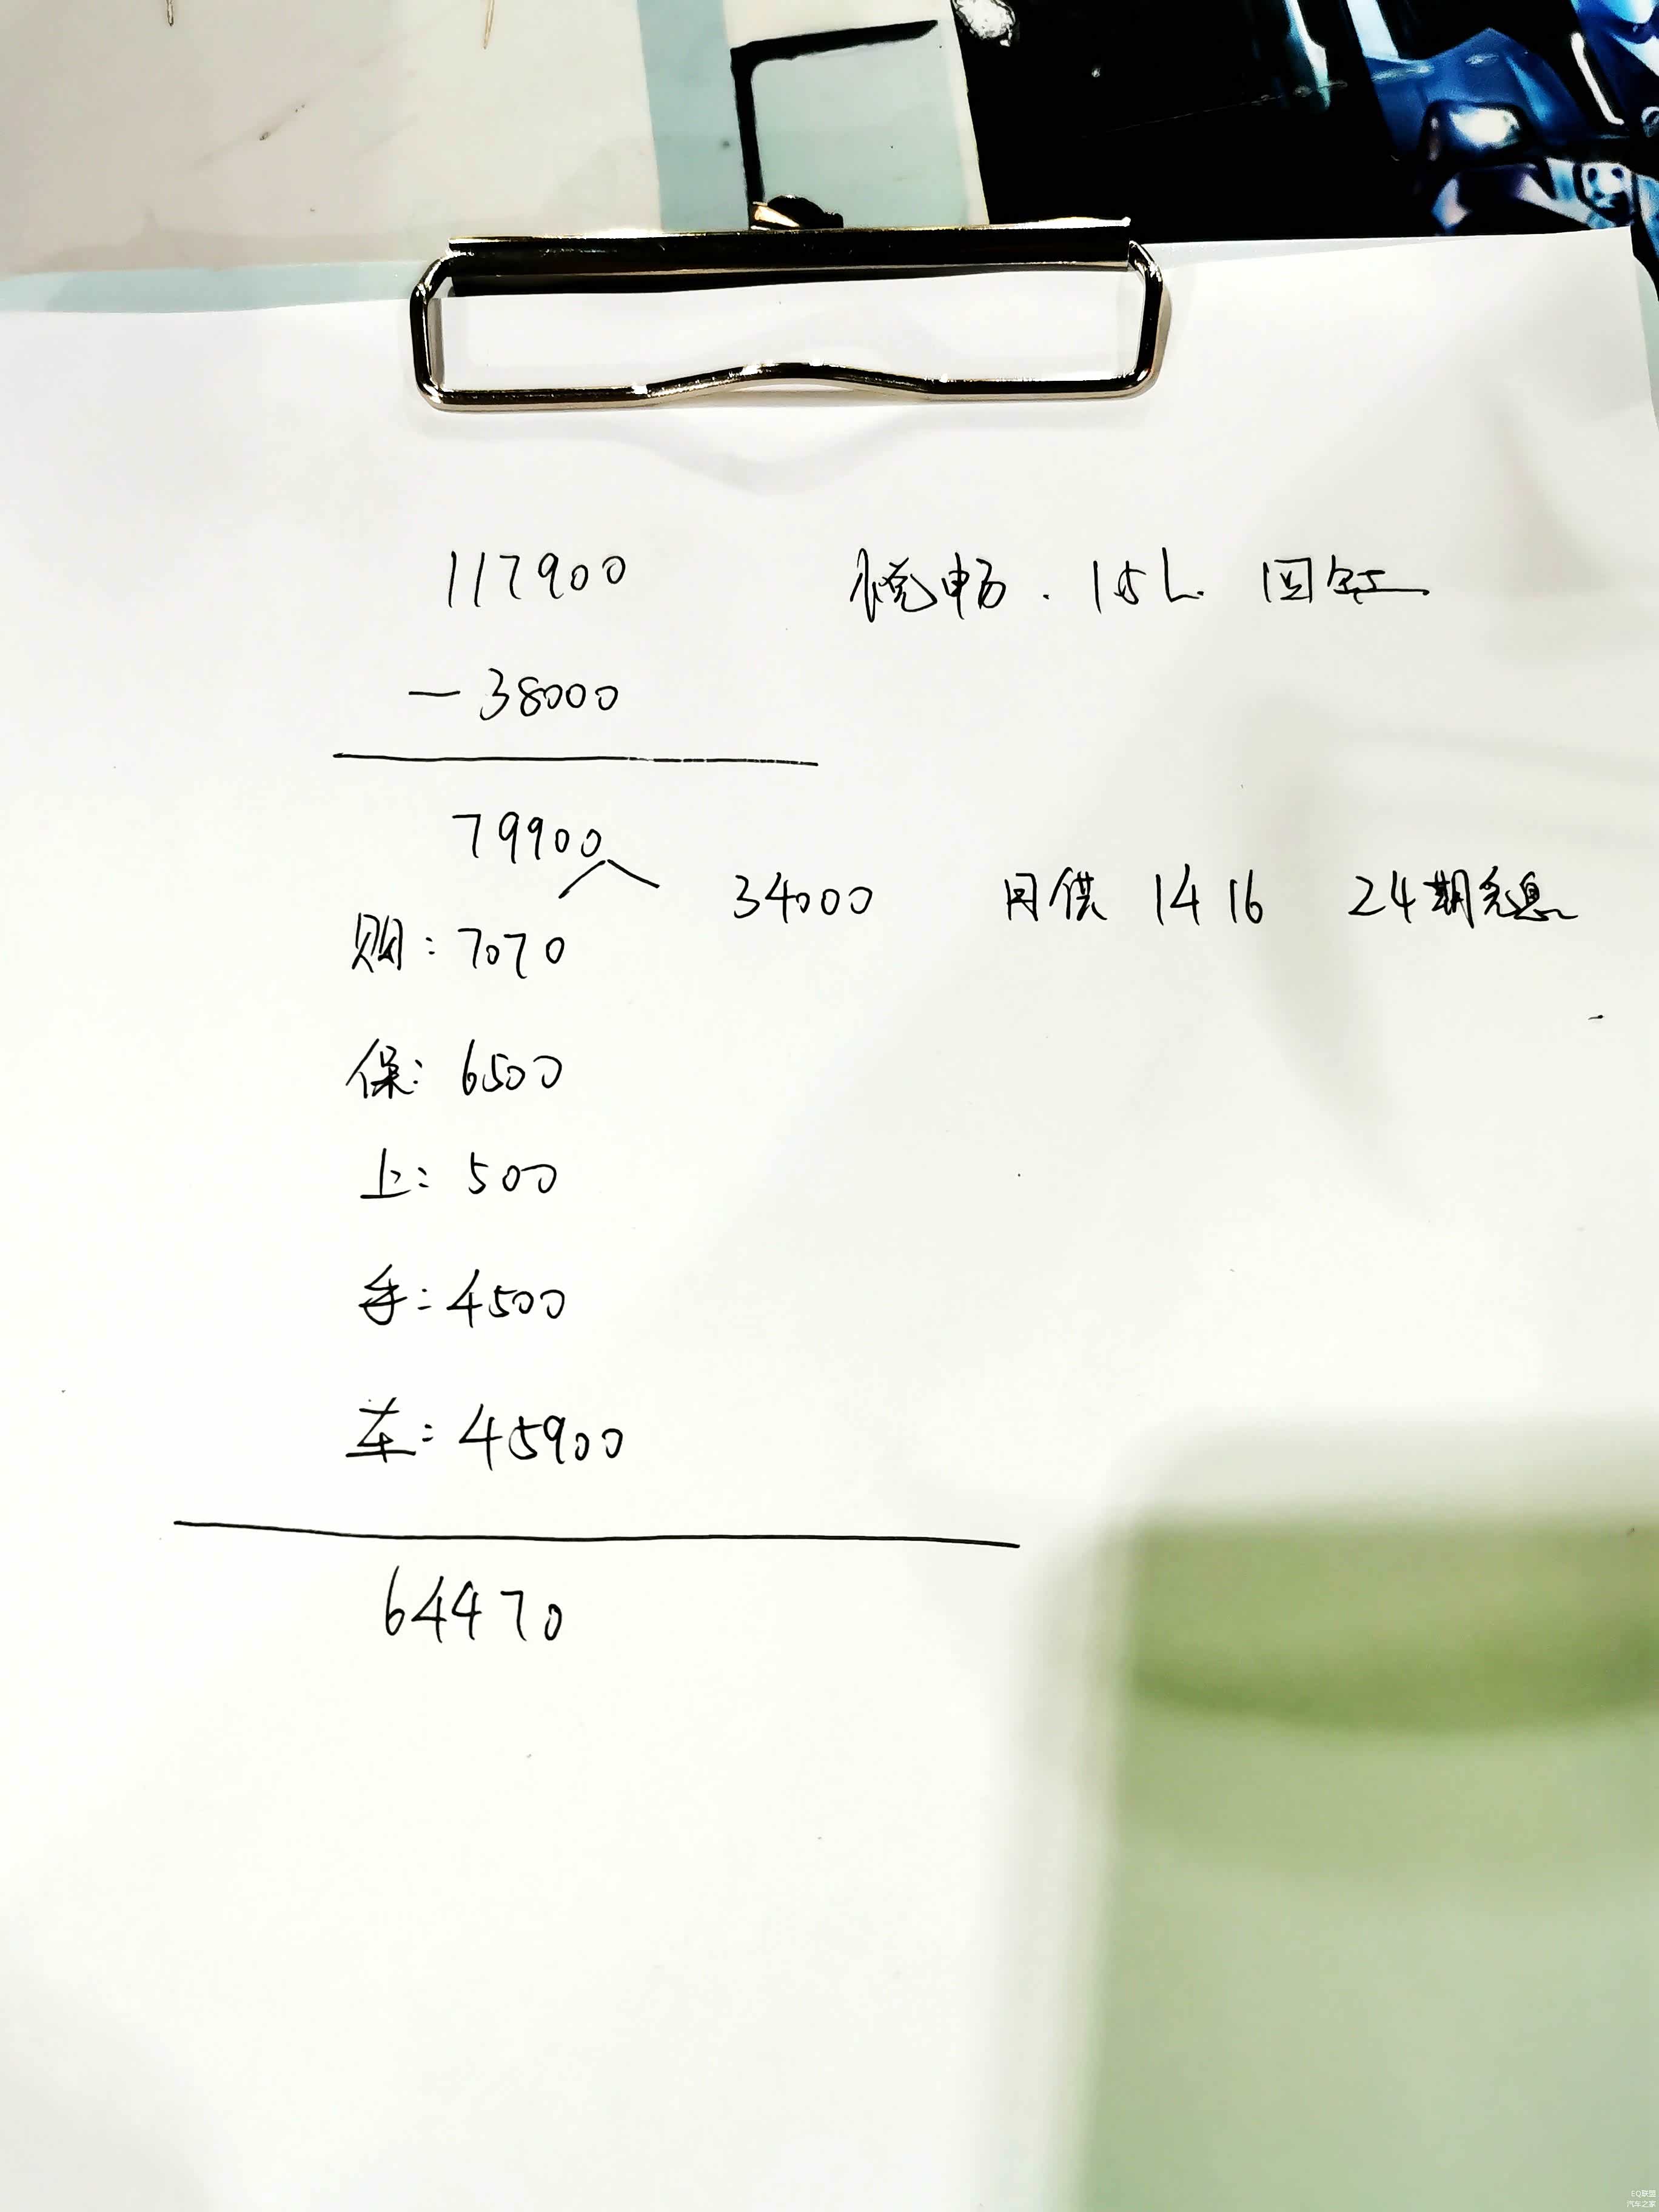 117900 悦畅. 15L 四缸
— 38000
79900
34000 月供 1416 24期免息
购: 7070
保: 6500
上: 500
手: 4500
车: 45900
64470
EQ联盟
汽车之家